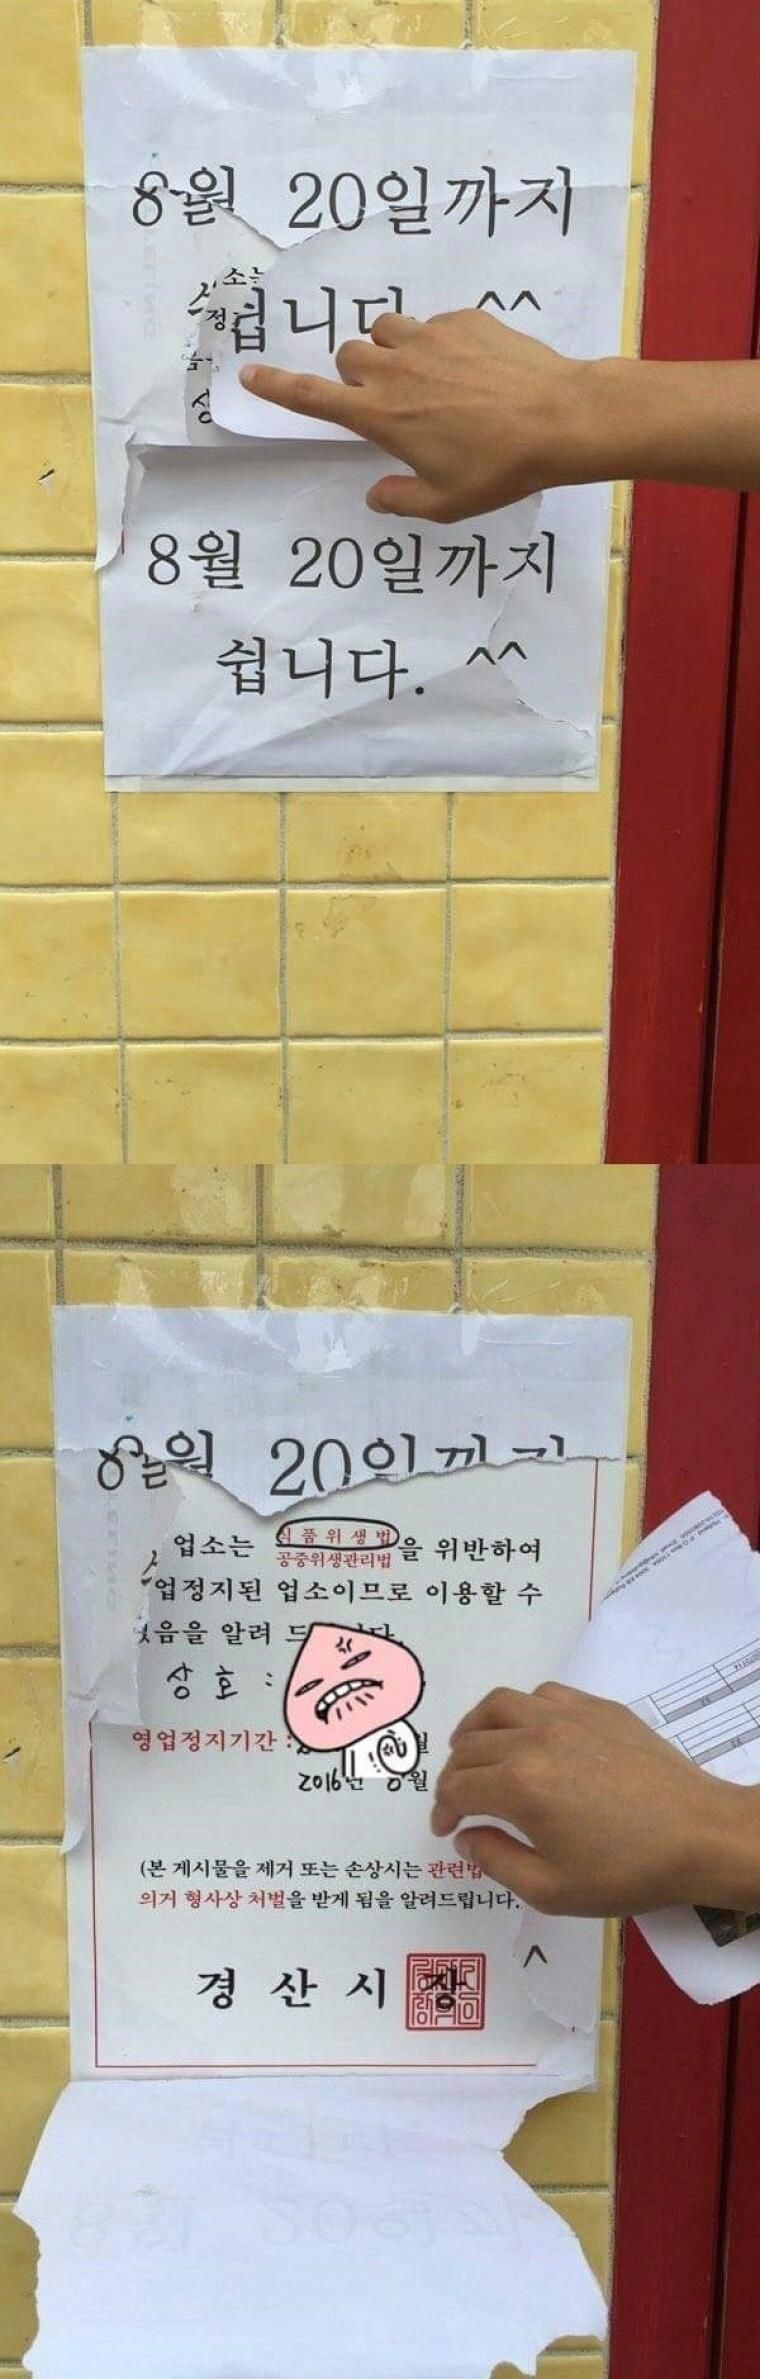 8월 20일까지
쉽니다. ^^
8월 20일까지
쉽니다. ^^
8월 20일까지
업소는 식품위생법
공중위생관리법 을 위반하여
업정지된 업소이므로 이용할 수
음을 알려 드 다.
상호 :
영업정지기간 :
2016년 8월
(본 게시물을 제거 또는 손상시는 관련법
의거 형사상 처벌을 받게 됨을 알려드립니다.
^
경산시장